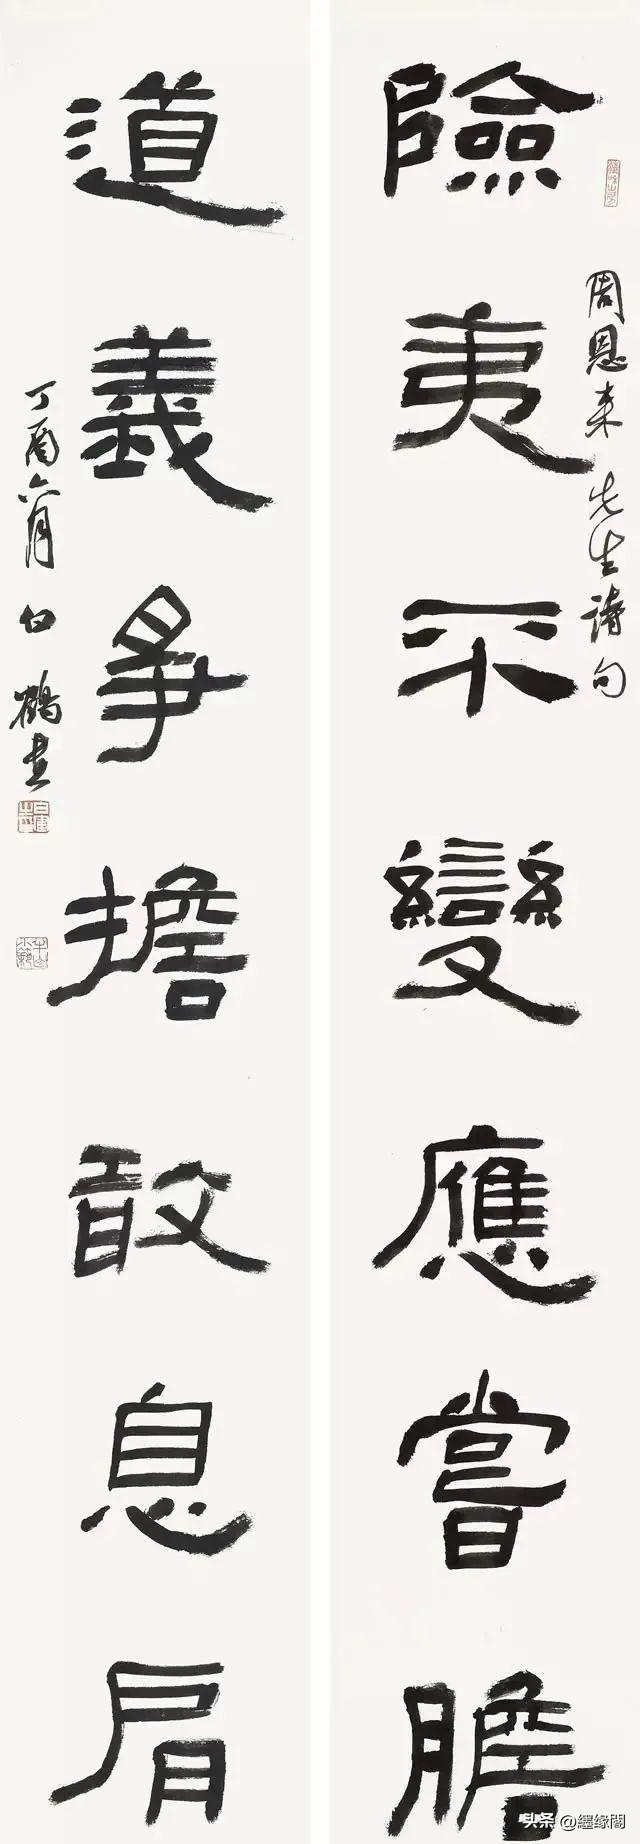 險夷不變應嘗膽
周恩来先生诗句
道義爭擔敢息肩
丁酉六月白鶴书
头条 @纆缘閣